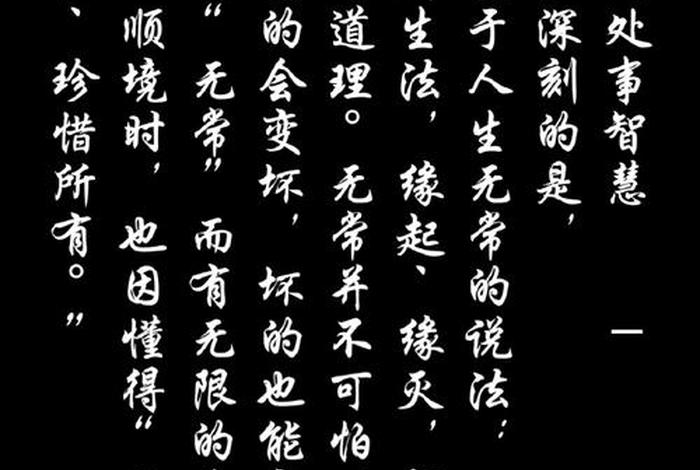 处事智慧 一
深刻的是,
于人生无常的说法:
生法,缘起、缘灭,
道理。无常并不可怕
的会变坏,坏的也能
“无常”而有无限的
顺境时,也因懂得“
、珍惜所有。”